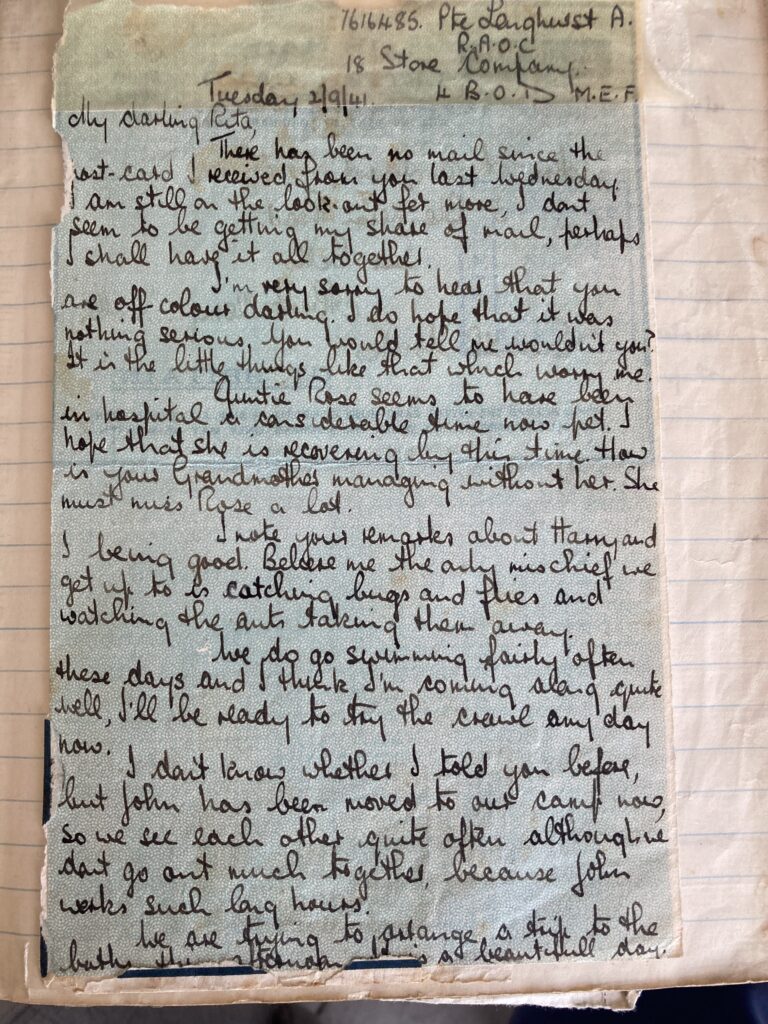 7616485. Pte Langhurst A.
R.A.O.C
18 Store Company.
Tuesday 2/9/41. 4 B.O.D M.E.F.
My darling Rita,
There has been no mail since the
post-card I received from you last Wednesday.
I am still on the look-out for more, I dont
seem to be getting my share of mail, perhaps
I shall have it all together.
I'm very sorry to hear that you
are off colour darling. I do hope that it was
nothing serious, you would tell me wouldn't you?
It is the little things like that which worry me.
Auntie Rose seems to have been
in hospital a considerable time now pet. I
hope that she is recovering by this time. How
is your Grandmother managing without her. She
must miss Rose a lot.
I note your remarks about Harry and
I being good. Believe me the only mischief we
get up to is catching bugs and flies and
watching the ants taking them away.
We do go swimming fairly often
these days and I think I'm coming along quite
well, I'll be ready to try the crawl any day
now.
I don't know whether I told you before,
but John has been moved to our camp now,
so we see each other quite often although we
dont go out much together, because John
works such long hours.
We are trying to arrange a trip to the
baths this afternoon is a beautifull day.